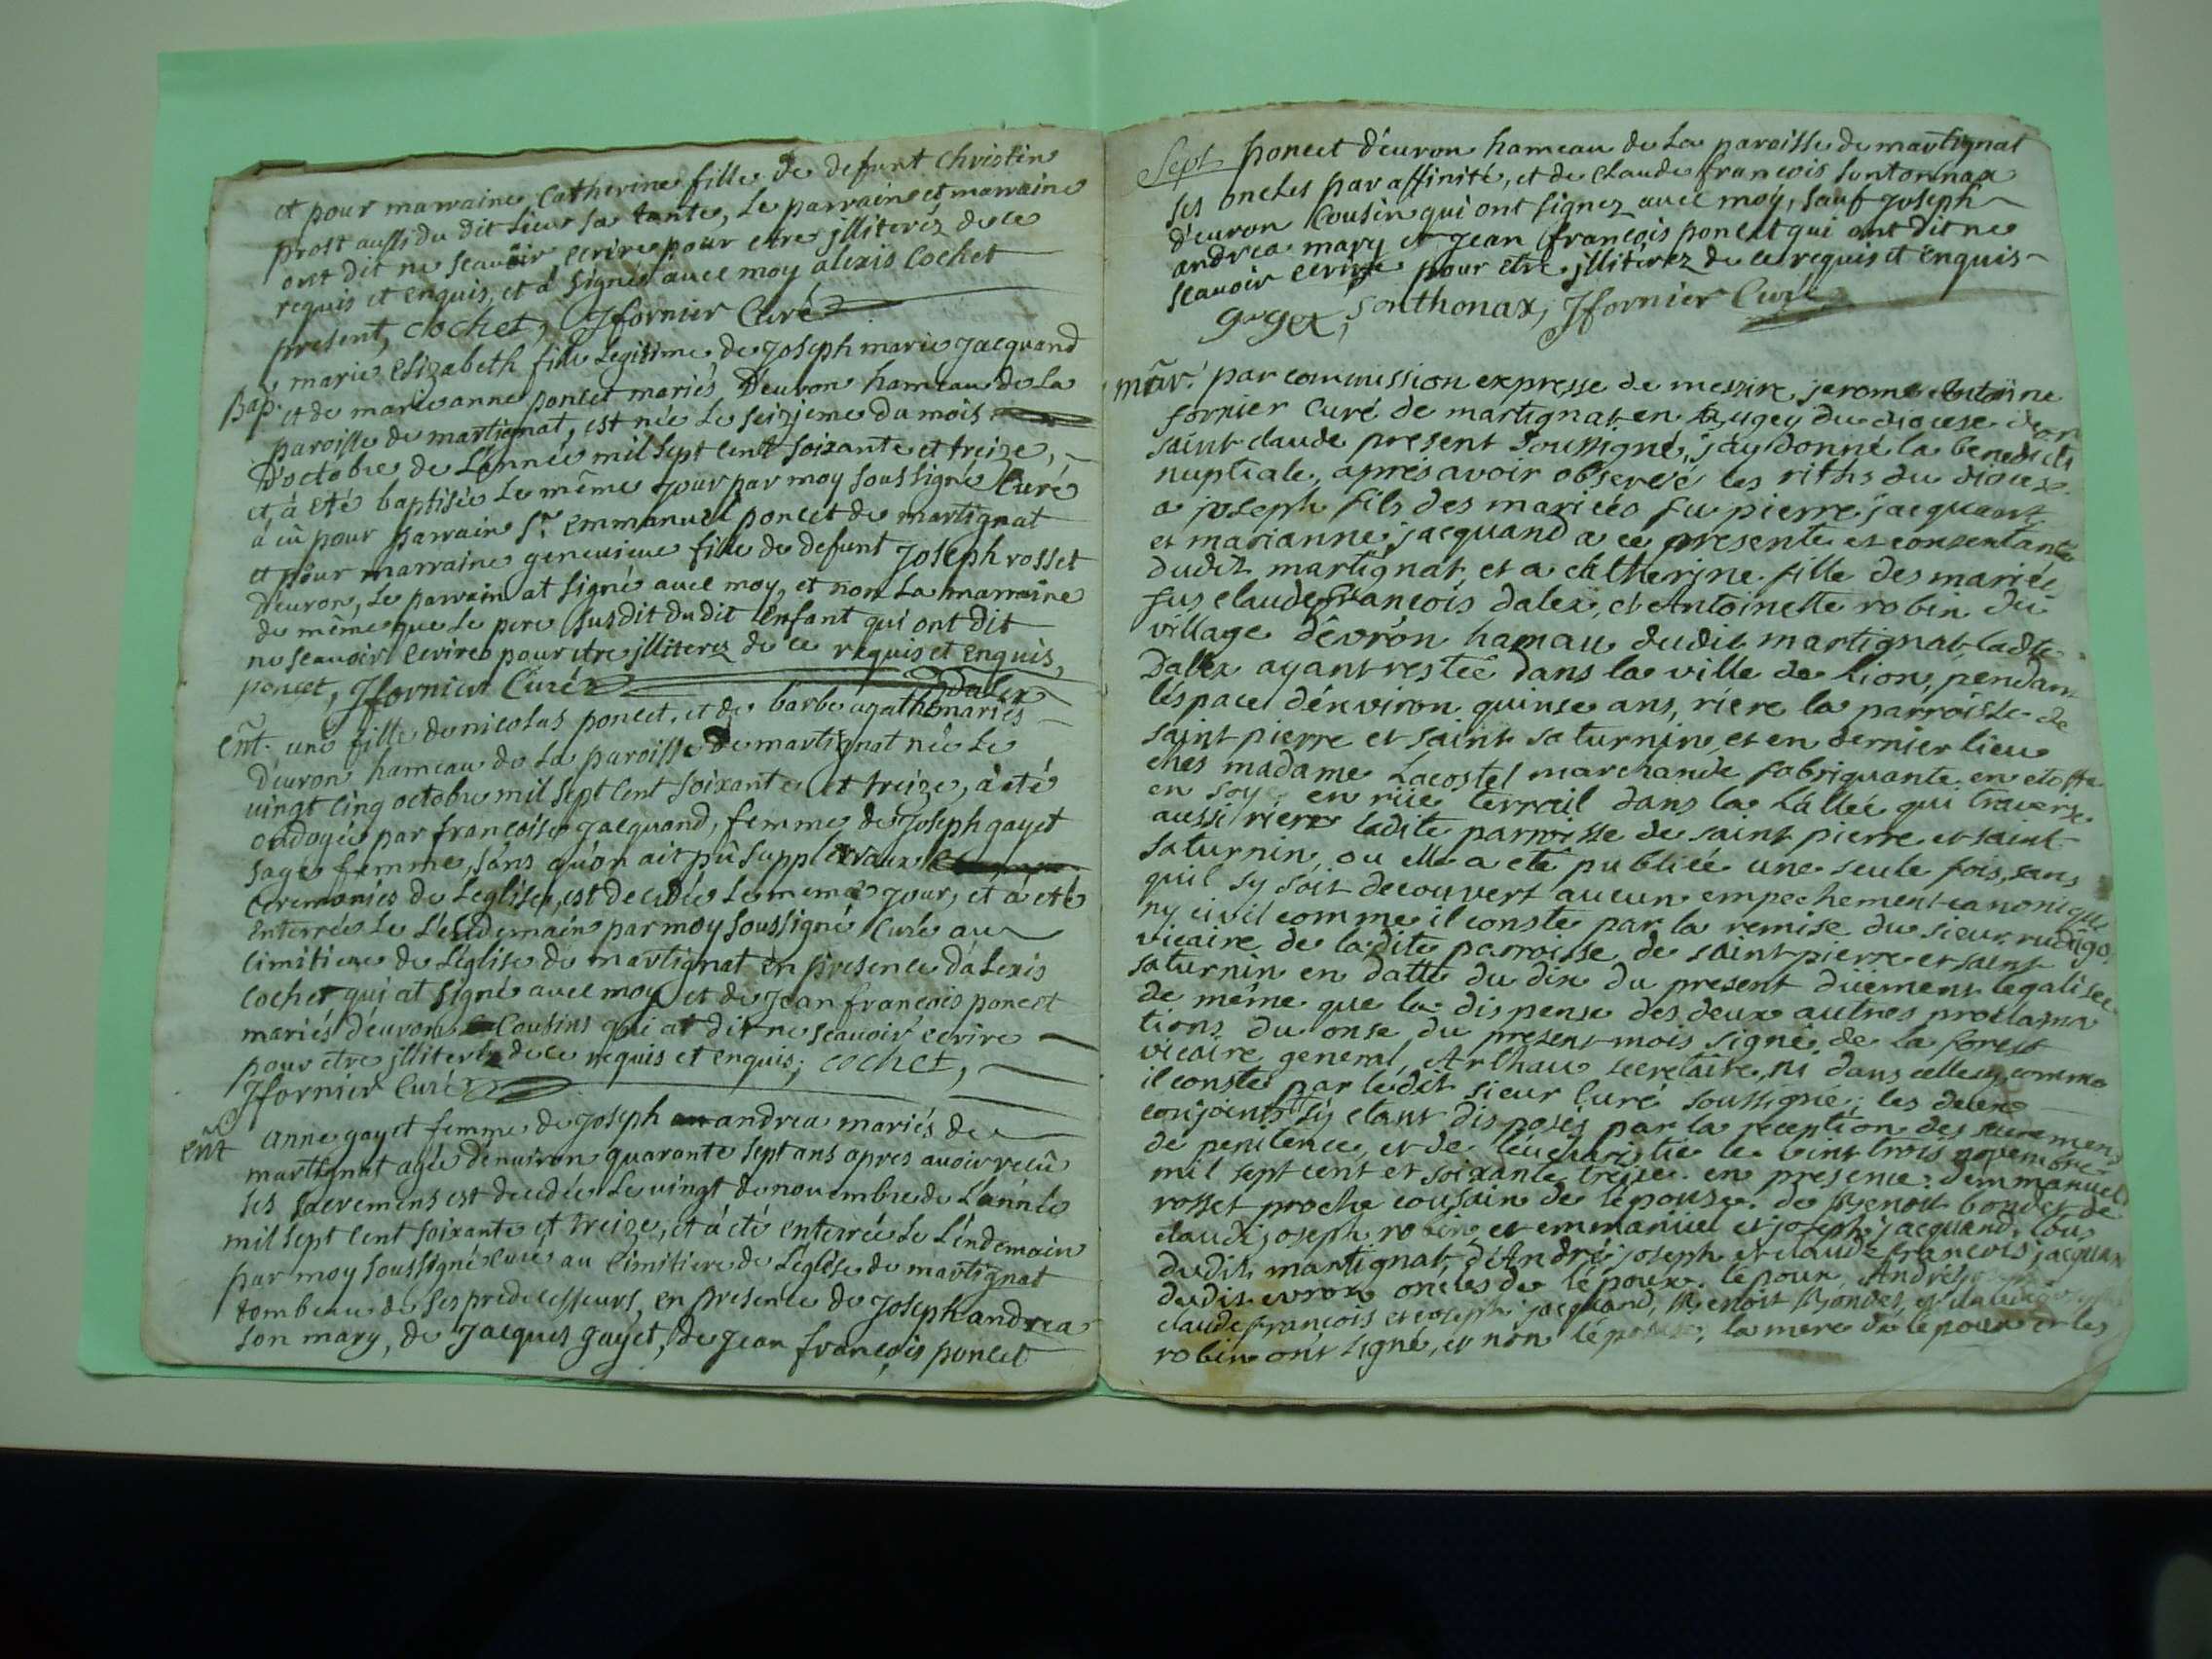 et pour marraine Catherine fille de defunt Christin
prost aussi du dit Lieu sa tante, Le parrain et marraine
ont dit ne scauoir ecrire pour etre jlliteréz de ce
requis et enquis, et à signé auec moy alexis Cochet
present, cochet, Jfornier Curé
Bap. marie Elizabeth fille Legitime de Joseph marie Jacquand
et de marieanne poncet mariés D'euron hameau de La
paroisse de martignat, est née Le seizjeme du mois
D'octobre de L'année mil sept cent soixante et treize,
et à eté baptisée Le même jour par moy soussigné Curé
à eû pour parrain Sr. Emmanuel poncet de martignat
et pour marraine geneuieue fille de defunt Joseph rosset
D'euron, Le parrain at signé auec moy, et non La marraine
de même que Le pere susdit du dit Enfant qui ont dit
ne scauoir Ecrire pour etre jlliterez de ce requis et enquis,
poncet, Jfornier Curé
dalex
ent. une fille de nicolas poncet, et de barbe agathe mariés
D'euron hameau de La paroisse de martignat née Le
uingt cinq octobre mil sept cent soixante et treize, à eté
ondoyée par françoise Jacquand, femme de Joseph gayet
sage femme, sans qu'on ait pû suppléer aux
ceremonies de L'eglise, est decedée Le meme jour, et à eté
Enterrée Le L'endemain par moy soussigné Curé au
Cimitiere de L'église de martignat en presence d'alexis
Cochet qui at signé auec moy et de Jean francois poncet
mariés d'euron Cousins qui at dit ne scauoir ecrire
pour etre jlliteréz de ce requis et enquis; cochet,
Jfornier Curé
ent anne gayet femme de Joseph andrea mariés de
martignat agée d'enuiron quarante sept ans apres auoir recû
ses sacremens est decedée Le uingt de nouembre de L'année
mil sept cent soixante et treize, et à eté enterrée Le L'endemain
par moy soussigné Curé au Cimitiere de L'église de martignat
tombeau de ses predecesseurs, en presence de Joseph andrea
son mary, de Jacques gayet, de Jean françois poncet
Sept poncet d'euron hameau de La paroisse de martignat
ses oncles par affinité, et de Claude françois sontonnax
d'euron Cousin qui ont signez auec moy, sauf Joseph
andrea mary et Jean françois poncet qui ont dit ne
scauoir ecrire pour etre jlliterez de ce requis et enquis
Sonthonax, Jfornier Curé
mar. par commission expresse de messire jerome Antoine
fornier curé de martignat en Bugey du diocese de
saint claude present soussigné, j'ay donné la benedicti
nuptiale, aprés avoir observé les riths du diocese
a joseph fils des mariées fu pierre jacquant
et marianne jacquand a ce presente et consentante
dudit martignat, et a catherine fille des mariés
fus claude françois dalex, et Antoinette robin du
village d'évron hamau dudit martignat ladte
Dalex ayant restée dans la ville de Lion, pendant
l'espace d'environ quinse ans, riere la parroisse de
saint pierre et saint saturnin, et en dernier lieu
chés madame Lacostel marchande fabriquante en etoffe
en soye en rüe terrail dans la l'allée qui traverse
aussi riere ladite parroisse de saint pierre et saint
saturnin, ou elle a eté publiée une seule fois, sans
quil sy soit decouvert aucun empechement canonique
ny civil comme il conste par la remise du sieur
vicaire de ladite parroisse de saint pierre et saint
saturnin en datte du dix du present düement legalisée
de même que la dispense des deux autres proclama
tions du onse du present mois signé de la forest
vicaire general, Arthau secretaire, ni dans celle cy comme
il conste par ledit sieur curé soussigné; les deux
conjoints sy etant disposés par la reception des sacremens
de penitence, et de l'eucharistie le vint trois novembre
mil sept cent et soixante treise. en presence d'emmanuel
rosset proche cousain de l'epouse, de Benoit bondet de
claude joseph robin, et emmanuel et joseph jacquand, tous
dudit martignat, d'André joseph et claude francois jacquan
dudit evron oncles de l'époux. l'époux, André
claude francois et joseph jacquand, Benoit Bondet, et claude joseph
robin ont signé, et non l'épouse, la mere de l'epoux et les